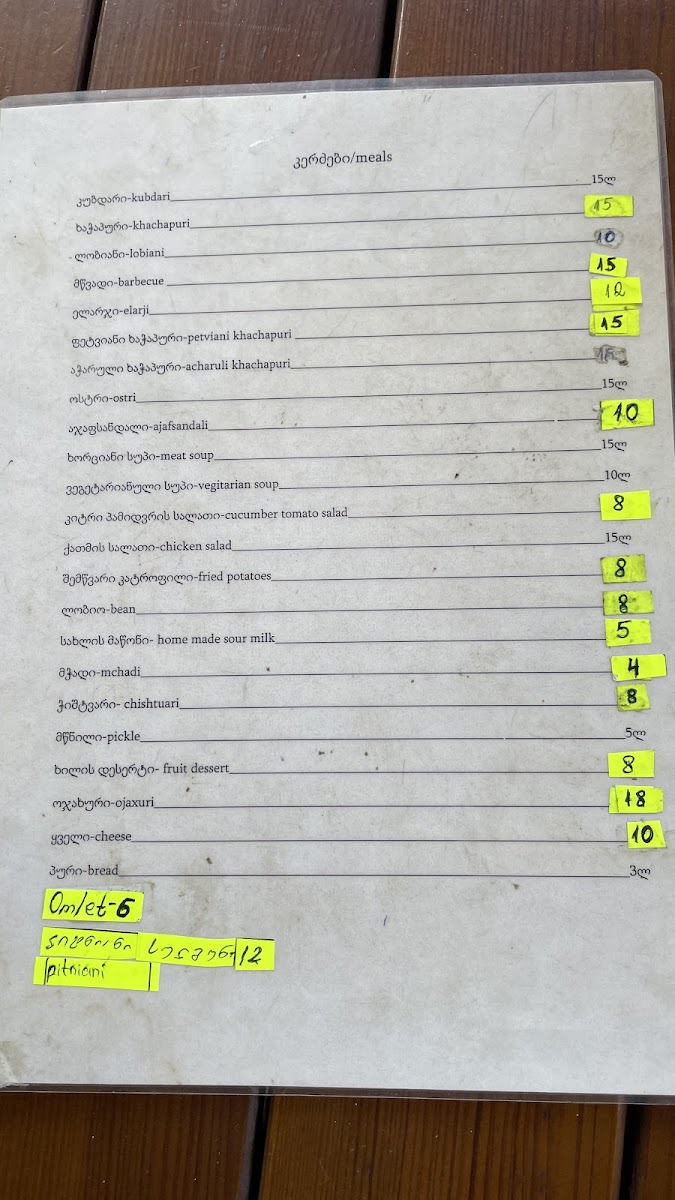 კერძები/meals
კუბდარი-kubdari 15ლ
ხაჭაპური-khachapuri 15
ლობიანი-lobiani 10
მწვადი-barbecue 15
ელარჯი-elarji 12
ფეტვიანი ხაჭაპური-petviani khachapuri 15
აჭარული ხაჭაპური-acharuli khachapuri
ოსტრი-ostri 15ლ
აჯაფსანდალი-ajafsandali 10
ხორციანი სუპი-meat soup 15ლ
ვეგეტარიანული სუპი-vegitarian soup 10ლ
კიტრი პამიდვრის სალათი-cucumber tomato salad 8
ქათმის სალათი-chicken salad 15ლ
შემწვარი კატროფილი-fried potatoes 8
ლობიო-bean 8
სახლის მაწონი- home made sour milk 5
მჭადი-mchadi 4
ჭიშტვარი- chishtuari 8
მწნილი-pickle 5ლ
ხილის დესერტი- fruit dessert 8
ოჯახური-ojaxuri 18
ყველი-cheese 10
პური-bread 3ლ
Omlet-6
12
pitniani